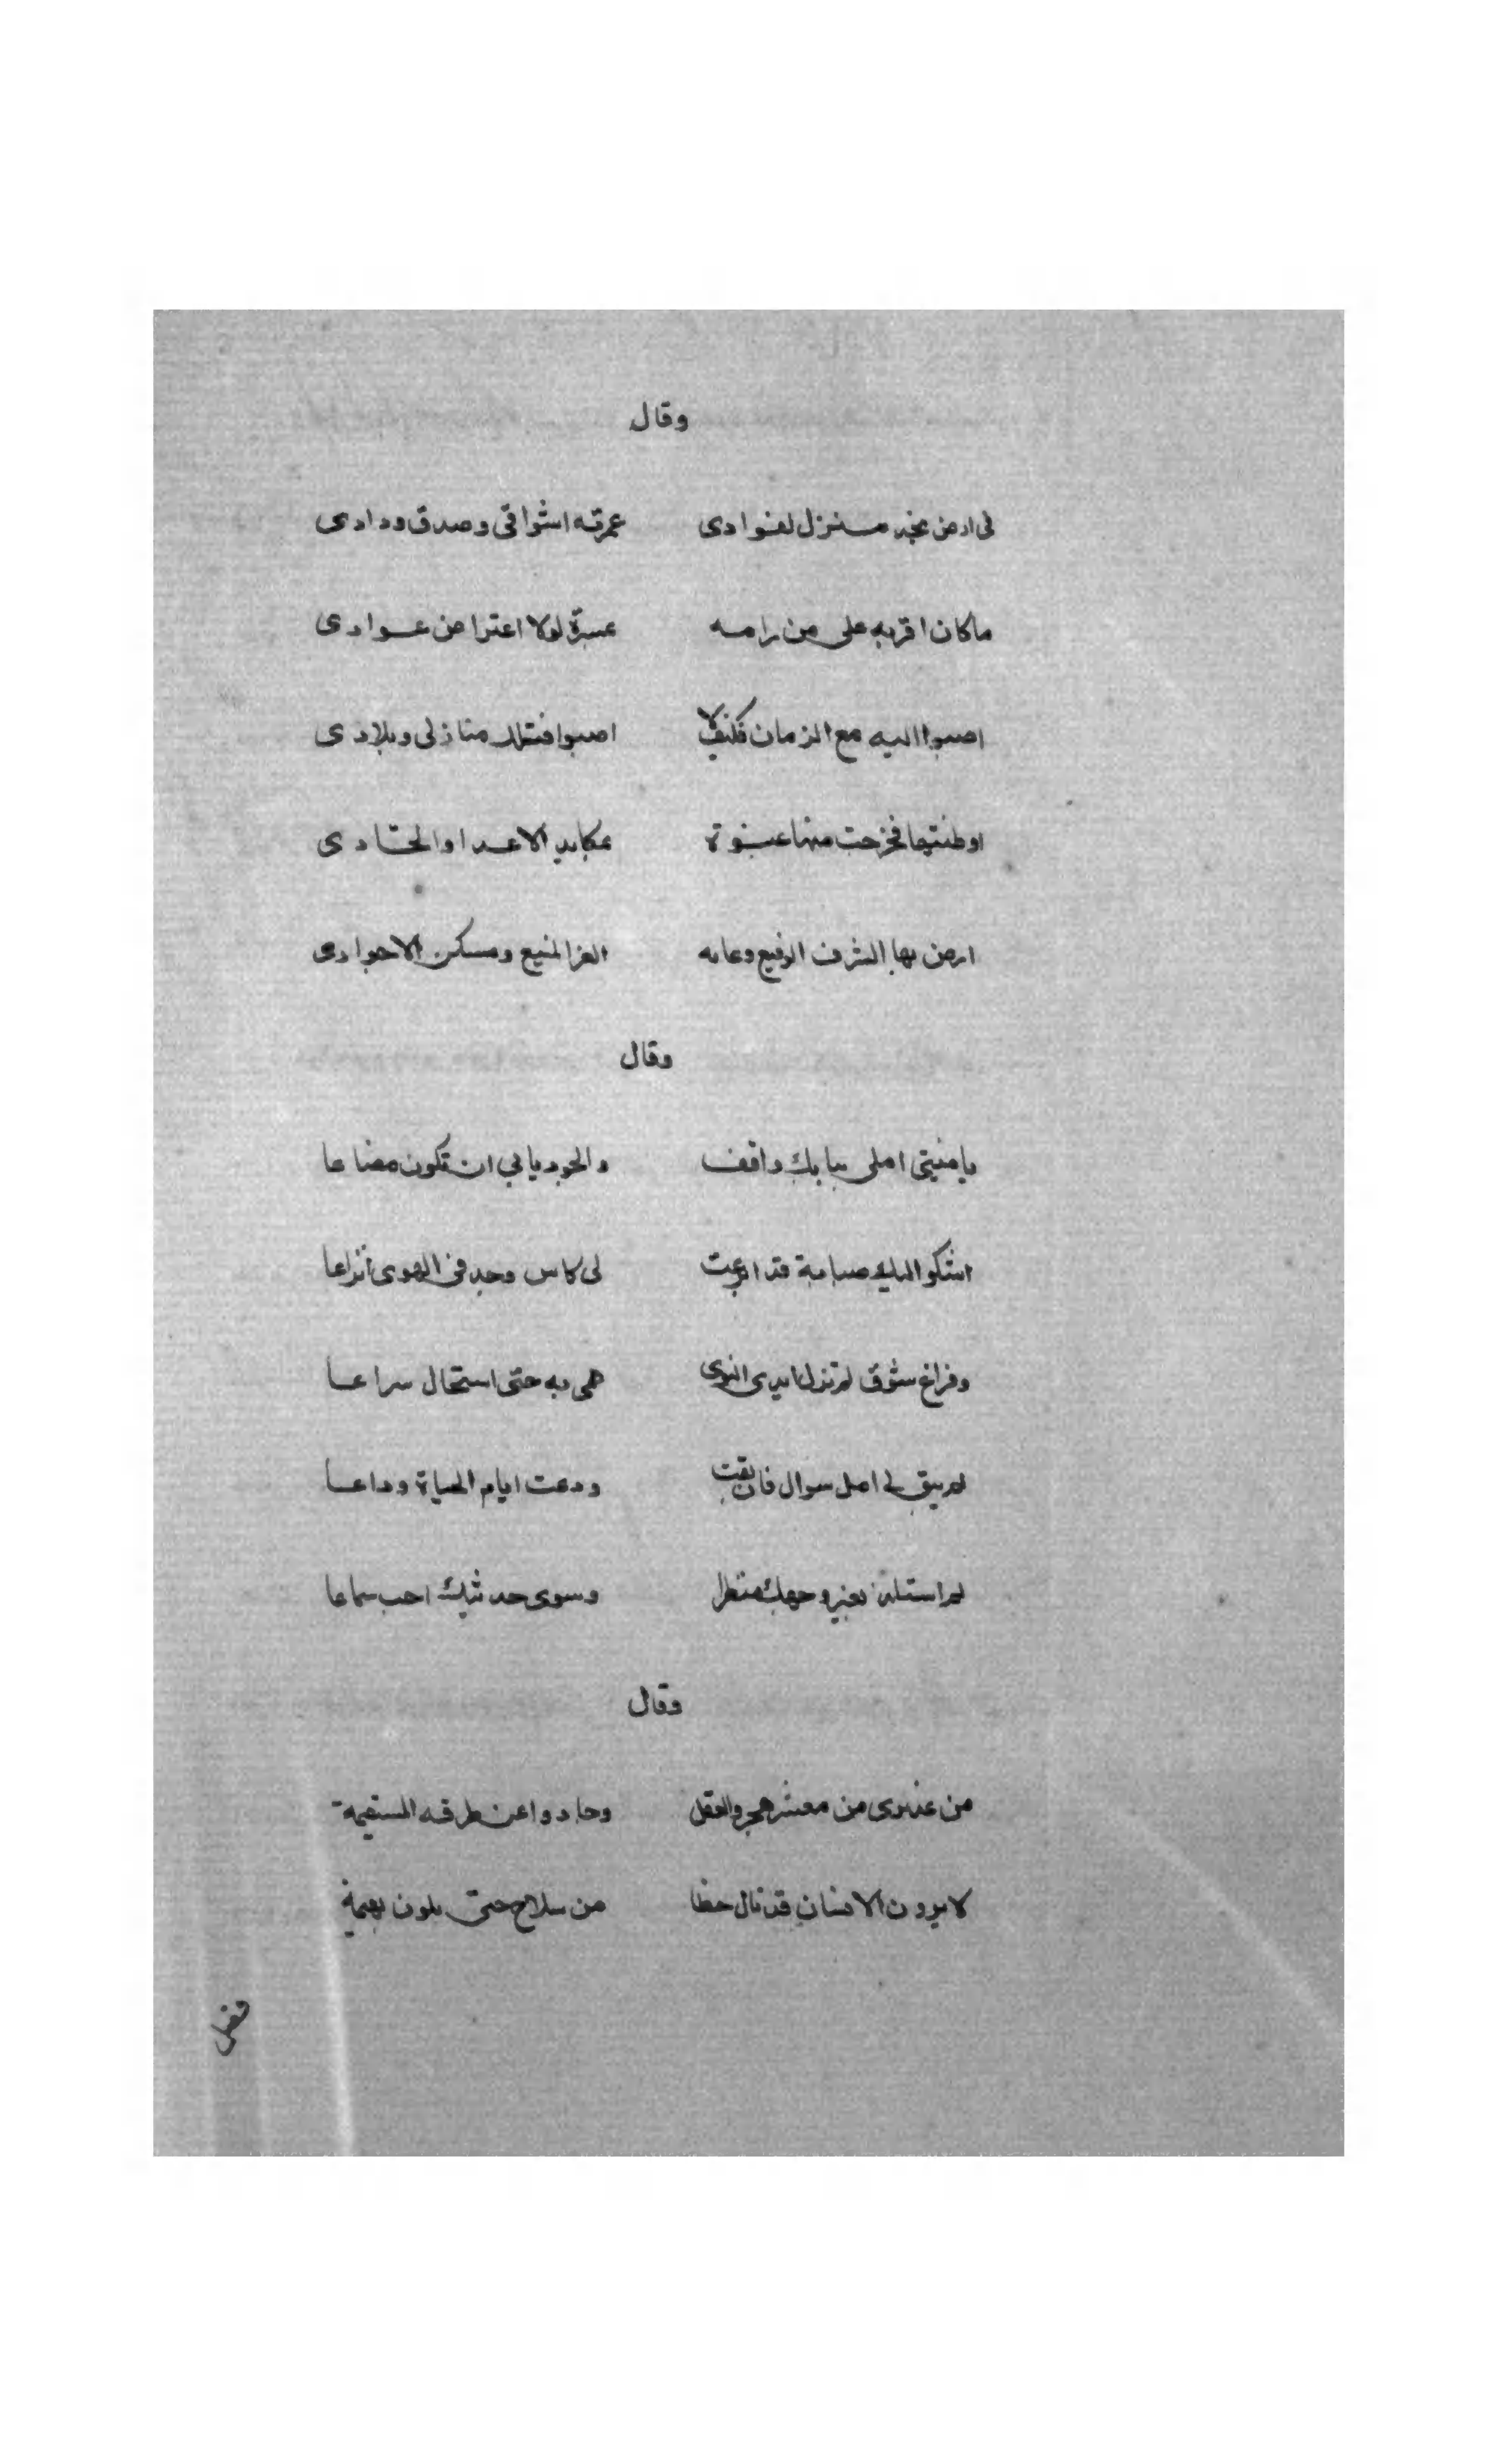 وقال
في ارض نجد منزل لفوادى عمرته اشواقى وصدق ودادى
ماكان اقربه على من رامه عسرة لولا اعتراض عوادى
اصبوا اليه مع الزمان فكيف لا اصبوا فتلك منازلى وبلادى
اوطنتها فخرجت منها عنوة بمكايد الاعدا والحسادى
ارض بها الشرف الرفيع وعابه العز المنيع ومسكن الاجوادى
وقال
يا منيتى املى ببابك واقف والجود يابى ان تكون مضاعا
اشكو اليك صبابة قد اترعت لى كاس وجد فى الهوى اتراعا
وفراغ شوق لم تزل ايدى النوى هى به حتى استحال سراعا
لم يبق لى امل سوال فان يفت ودعت ايام الحياة وداعا
لم استلذ بغير وجهك منظرا وسوى حديثك احب سماعا
وقال
من عذيرى من معشر هجرو العقل وحادوا عن طرقه المستقيمة
لا يرون الانسان قد نال حظا من سلاح حتى يكون بهيمة